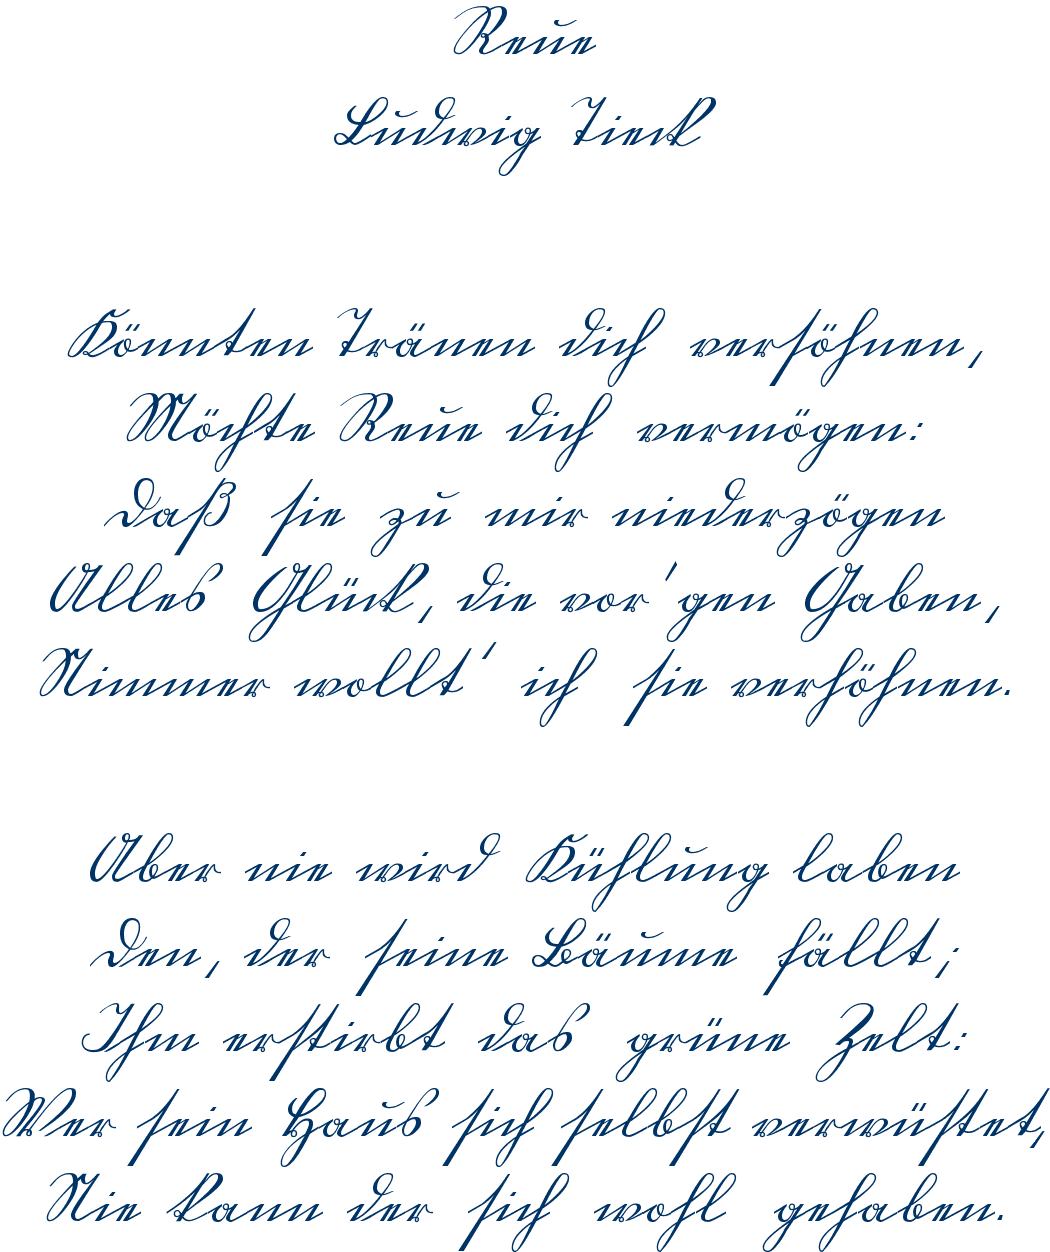 Reue
Ludwig Tieck
Könnten Tränen dich versöhnen,
Möchte Reue dich vermögen:
Daß sie zu mir niederzögen
Alles Glück, die vor'gen Gaben,
Nimmer wollt' ich sie verhöhnen.
Aber nie wird Kühlung laben
Den, der seine Bäume fällt;
Ihm erstirbt das grüne Zelt:
Wer sein Haus sich selbst verwüstet,
Nie kann der sich wohl gehaben.